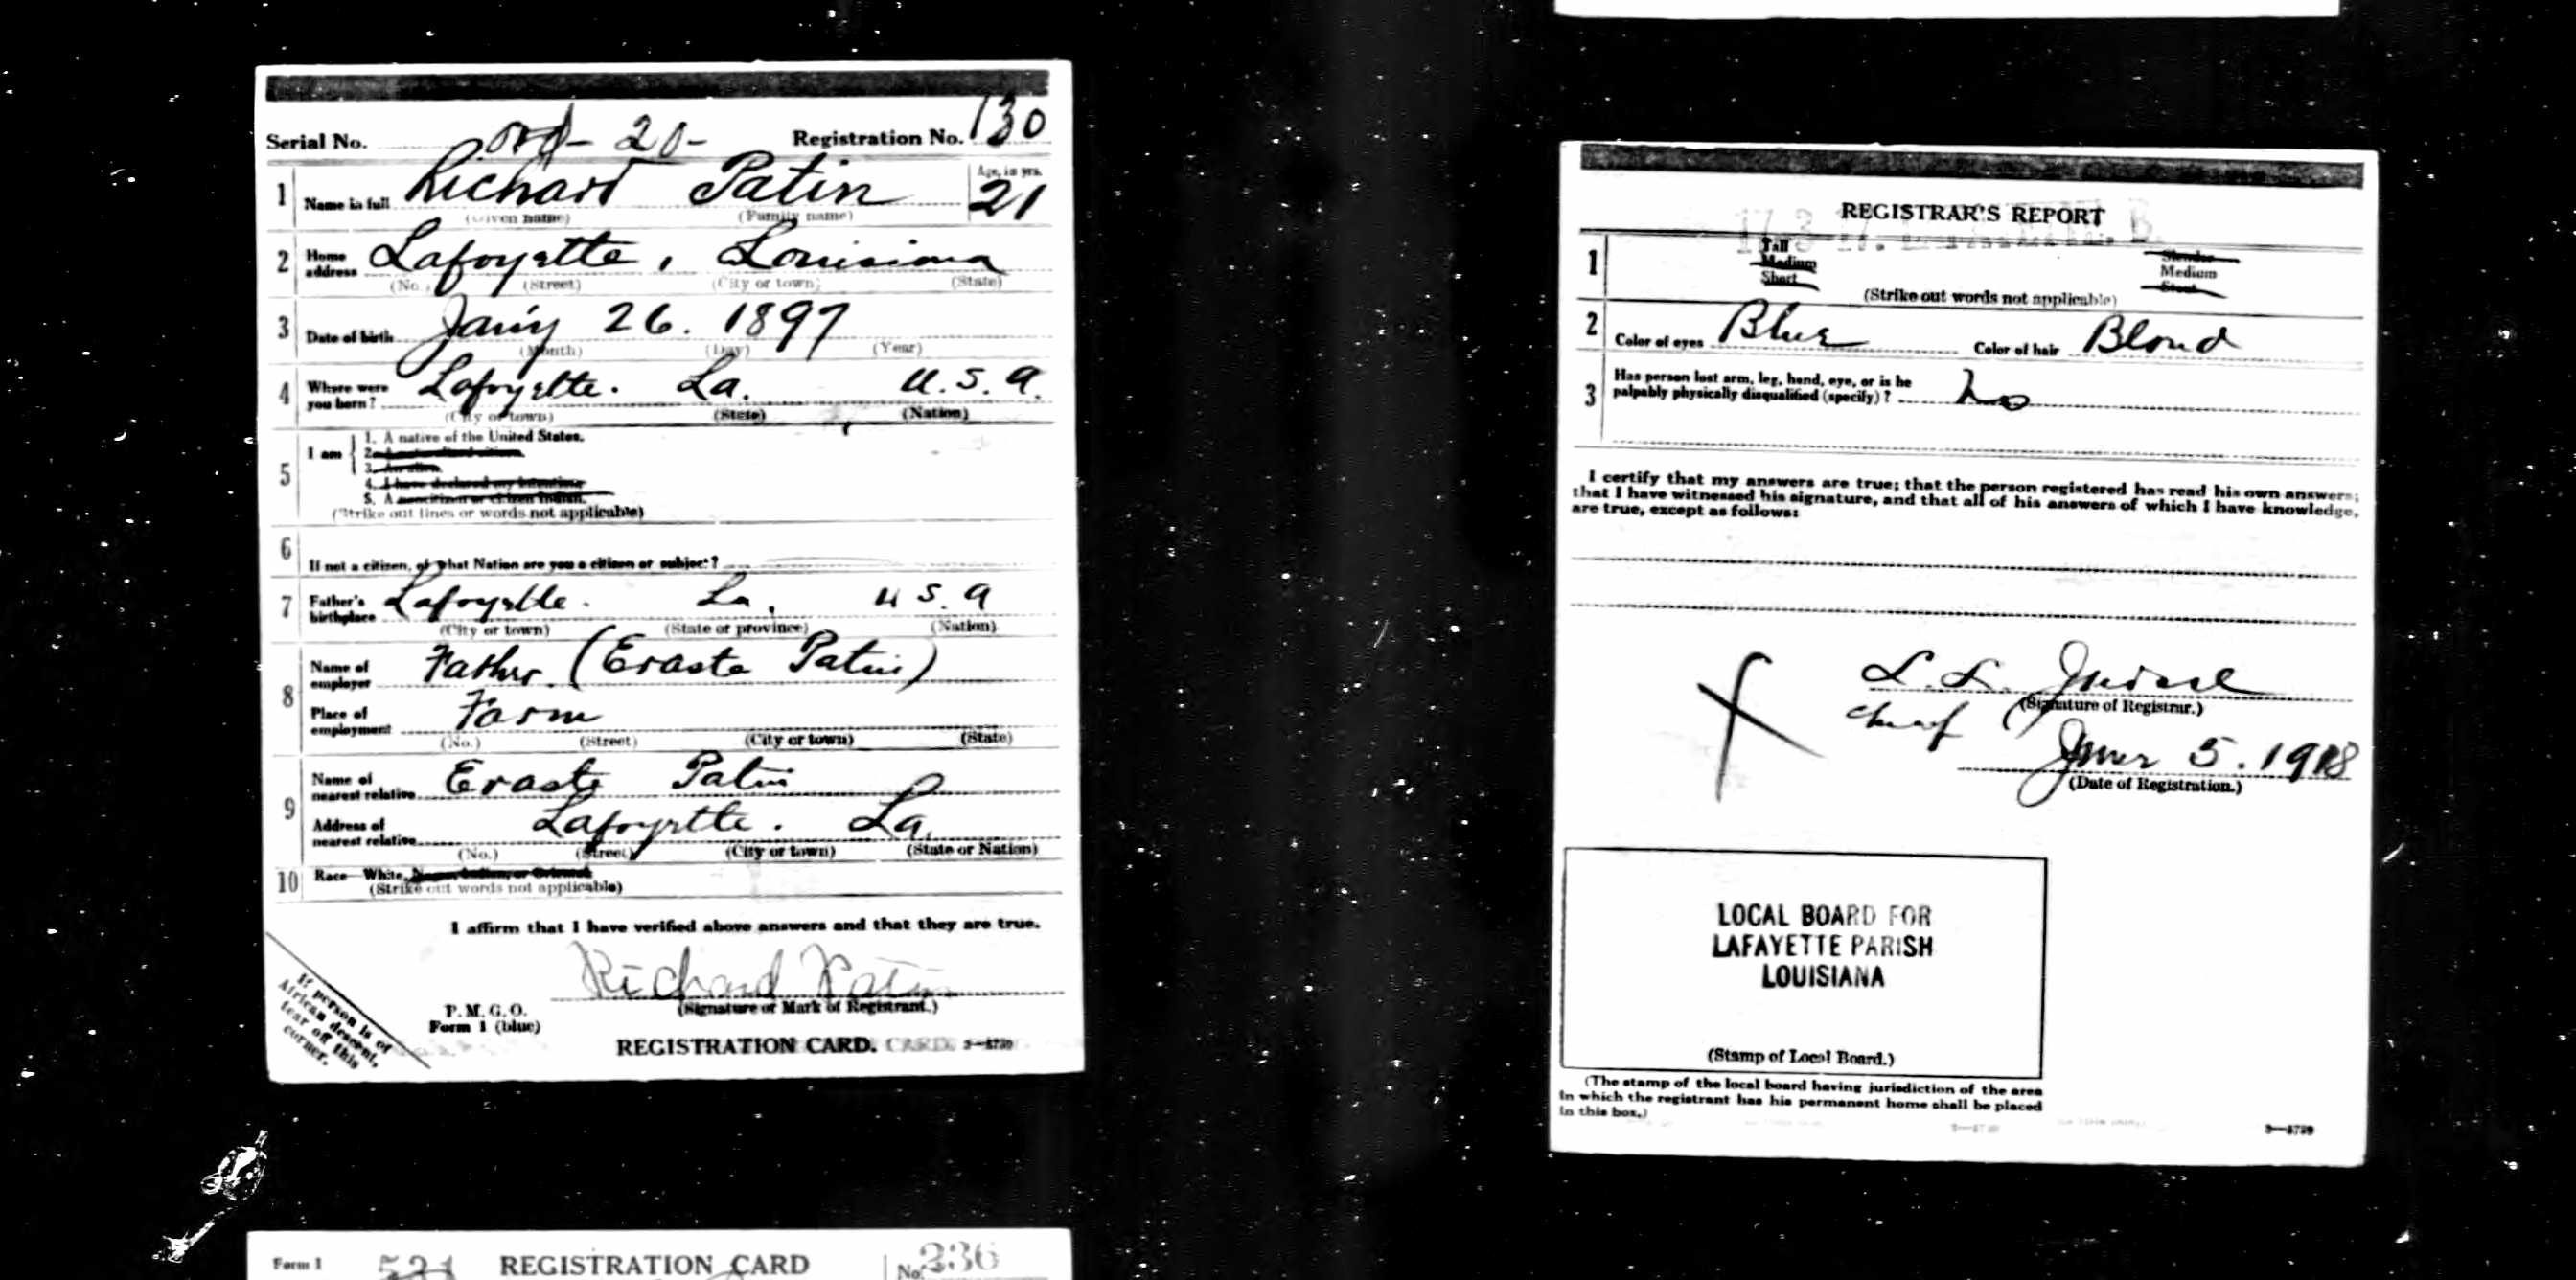 Serial No. Ord - 20 - Registration No. 130
1 Name in full Richard Patin Age, in yrs. 21
(Given name) (Family name)
2 Home address Lafayette, Louisiana
(No.) (Street) (City or town) (State)
3 Date of birth Jan'y 26. 1897
(Month) (Day) (Year)
4 Where were you born? Lafayette. La. U.S.A.
(City or town) (State) (Nation)
5 I am
1. A native of the United States.
2. A naturalized citizen.
3. An alien.
4. I have declared my intention
5. A noncitizen or citizen Indian.
(Strike out lines or words not applicable)
6 If not a citizen, of what Nation are you a citizen or subject?
7 Father's birthplace Lafayette. La. U S. A
(City or town) (State or province) (Nation)
8 Name of employer Father (Eraste Patin)
Place of employment Farm
(No.) (Street) (City or town) (State)
9 Name of nearest relative Eraste Patin
Address of nearest relative Lafayette. La.
(No.) (Street) (City or town) (State or Nation)
10 Race—White, Negro, Indian, or Oriental
(Strike out words not applicable)
I affirm that I have verified above answers and that they are true.
Richard Patin
(Signature or Mark of Registrant.)
P. M. G. O.
Form 1 (blue)
REGISTRATION CARD. CARD. 3—8739
If person is of
African descent,
tear off this
corner.
Form 1 521 REGISTRATION CARD No. 236
REGISTRAR'S REPORT
1 Tall Slender
Medium Medium
Short Stout
(Strike out words not applicable)
2 Color of eyes Blue Color of hair Blond
3 Has person lost arm, leg, hand, eye, or is he
palpably physically disqualified (specify)? no
I certify that my answers are true; that the person registered has read his own answers;
that I have witnessed his signature, and that all of his answers of which I have knowledge,
are true, except as follows:
X L. L. Judice
(Signature of Registrar.)
Chief
June 5. 1918
(Date of Registration.)
LOCAL BOARD FOR
LAFAYETTE PARISH
LOUISIANA
(Stamp of Local Board.)
(The stamp of the local board having jurisdiction of the area
in which the registrant has his permanent home shall be placed
in this box.)
3—8739